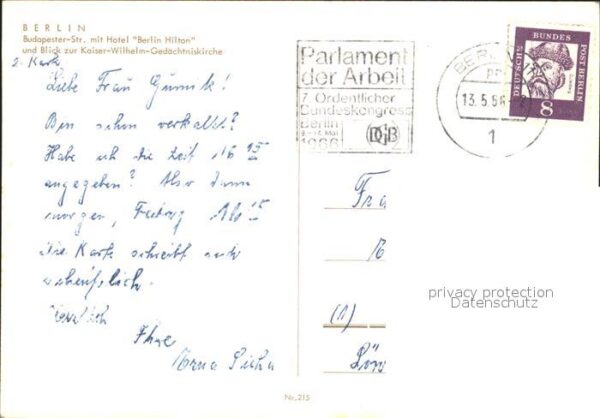 BERLIN
Budapester-Str. mit Hotel "Berlin Hilton"
und Blick zur Kaiser-Wilhelm-Gedächtniskirche
2. Karte
Liebe Frau
Bin schon verkalkt?
Habe ich die Zeit 16 15
angegeben? Also dann
morgen, Freitag 16 15
Die Karte schreibt sich
scheußlich.
Herzlich
Ihre
Erna
Parlament
der Arbeit
7. Ordentlicher
Bundeskongress
Berlin
9.-14. Mai
1966 DGB
BERLIN
13.5.66
1
DEUTSCHE BUNDESPOST BERLIN
8
Fra
(1)
Löw
privacy protection
Datenschutz
Nr. 215